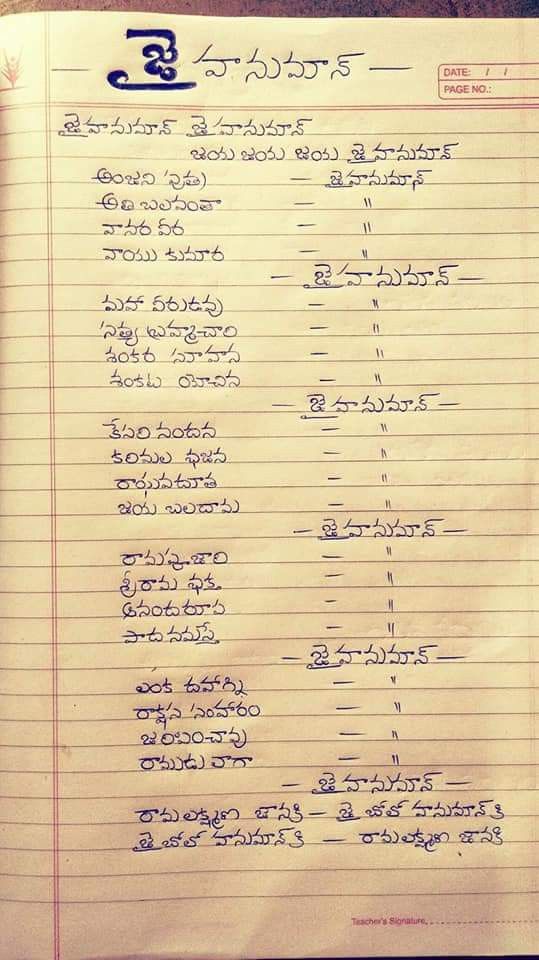 — జై హనుమాన్ —
DATE: / /
PAGE NO.:
జైహనుమాన్ జైహనుమాన్
జయ జయ జయ జైహనుమాన్
అంజని పుత్ర — జైహనుమాన్
అతి బలవంతా — "
వానర వీర — "
వాయు కుమార — "
— జైహనుమాన్ —
మహా వీరుడవు — "
సత్య బ్రహ్మచారి — "
శంకర — "
శంకట మోచన — "
— జైహనుమాన్ —
కేసరి నందన — "
కరిమల భజన — "
రాఘవదూత — "
జయ బలదామ — "
— జైహనుమాన్ —
రామపూజారి — "
శ్రీరామ భక్త — "
ఆనందరూప — "
పాద నమస్తే — "
— జైహనుమాన్ —
లంక దహాగ్ని — "
రాక్షస సంహారం — "
జరిపించావు — "
రాముడు — "
— జైహనుమాన్ —
రామలక్ష్మణ జానకి — జై బోలో హనుమాన్ కి
జై బోలో హనుమాన్ కి — రామలక్ష్మణ జానకి
Teacher's Signature